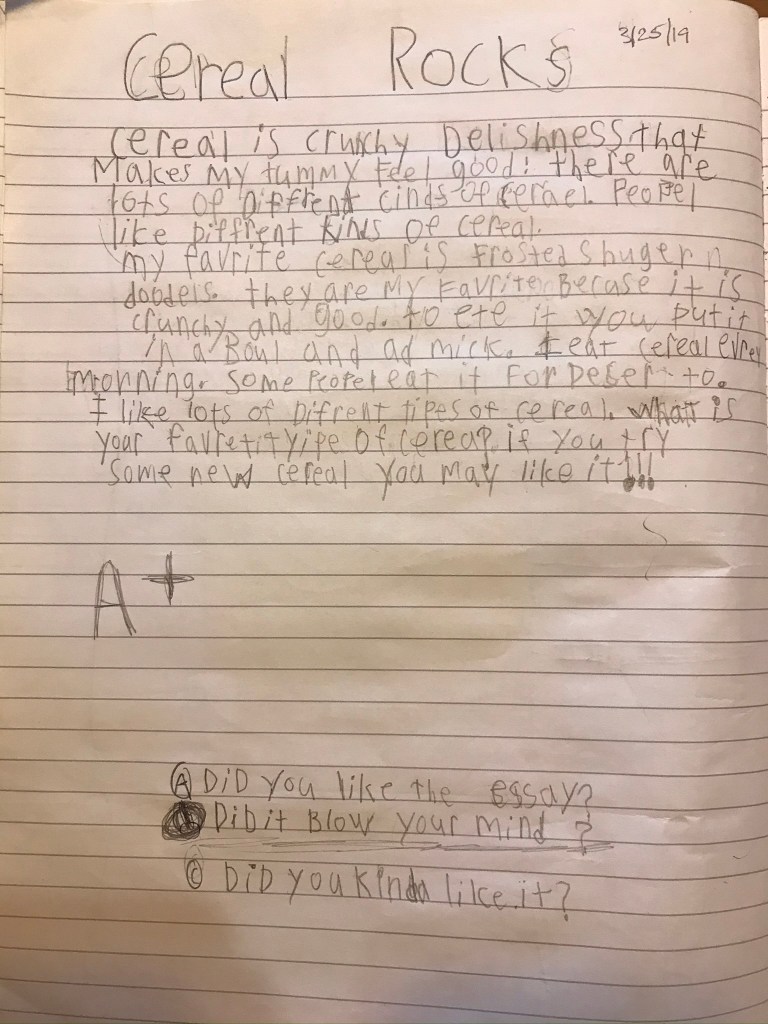 Cereal Rocks
3/25/19
Cereal is crunchy Delishness that
Makes My tummy feel good! there are
lots of Diffrent cinds of cerael. Peopel
like Diffrent kinds of cereal.
my favrite cereal is Frosted Shuger n
dooders. they are My Favrite Becase it is
crunchy and good. to ete it you put it
in a Boul and ad mick. I eat cereal evrey
mronning. Some Peopel eat it For Deser to.
I like lots of Difrent tipes of cereal. what is
your favret tyipe of cereal? if you try
Some new cereal you may like it!!!
A+
A DiD you like the essay?
Did it Blow your mind?
C DiD you kinda like it?